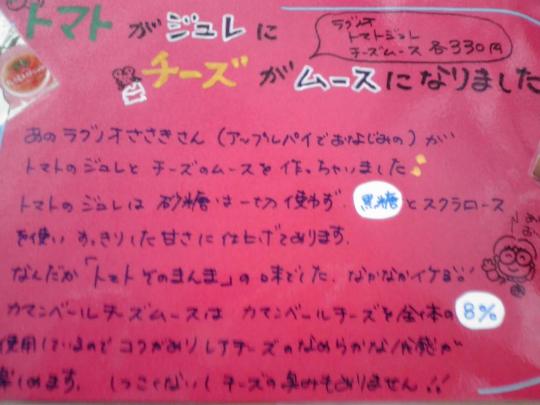 トマトがジュレに
ラグノオ
トマトジュレ
チーズムース 各330円
チーズがムースになりました
あのラグノオささきさん(アップルパイでおなじみの)が
トマトのジュレとチーズのムースを作っちゃいました
トマトのジュレは砂糖は一切使わず、黒糖とスクラロース
を使いすっきりした甘さに仕上げてあります。
なんだか「トマトそのまんま」の味でした。なかなかイケる!
カマンベールチーズムースはカマンベールチーズを全体の8%
使用しているのでコクがありしチーズのなめらかな
楽しめます。しつこくないしチーズの臭みもありません!!